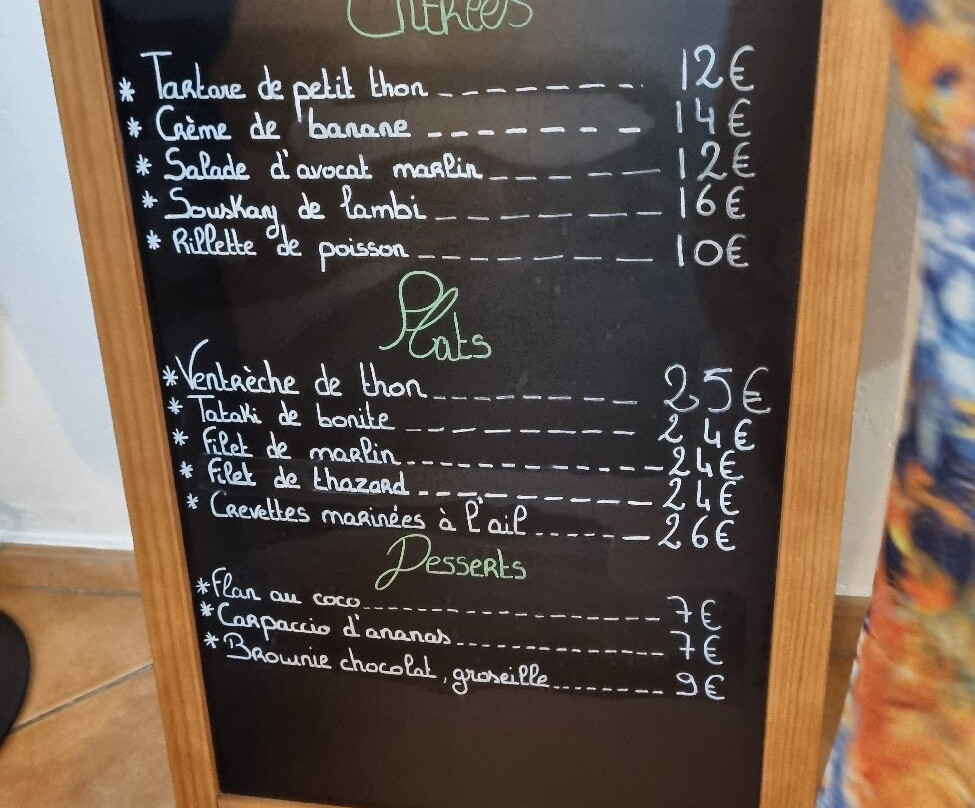 Entrées
* Tartare de petit thon -------- 12€
* Crème de banane ------- 14€
* Salade d'avocat marlin ------ 12€
* Souskay de lambi ------- 16€
* Rillette de poisson -------- 10€
Plats
* Ventrèche de thon -------- 25€
* Tataki de bonite -------- 24€
* Filet de marlin ------------ 24€
* Filet de thazard --------- 24€
* Crevettes marinées à l'ail ------- 26€
Desserts
* Flan au coco ------------------- 7€
* Carpaccio d'ananas -------------- 7€
* Brownie chocolat, groseille -------- 9€